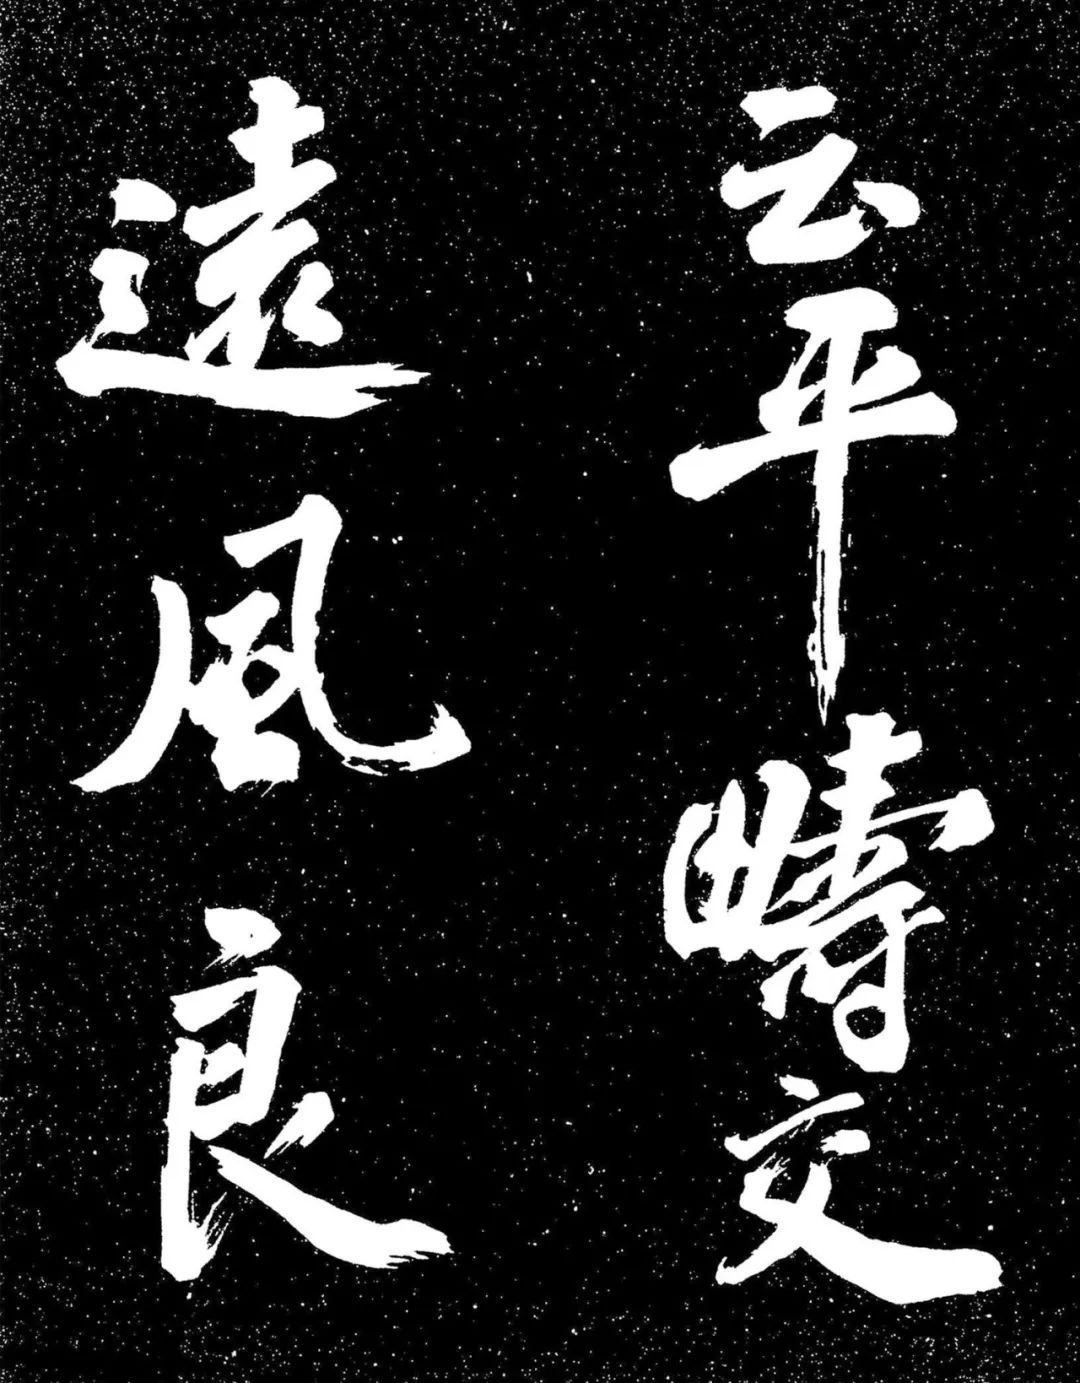 云平疇交
遠風良